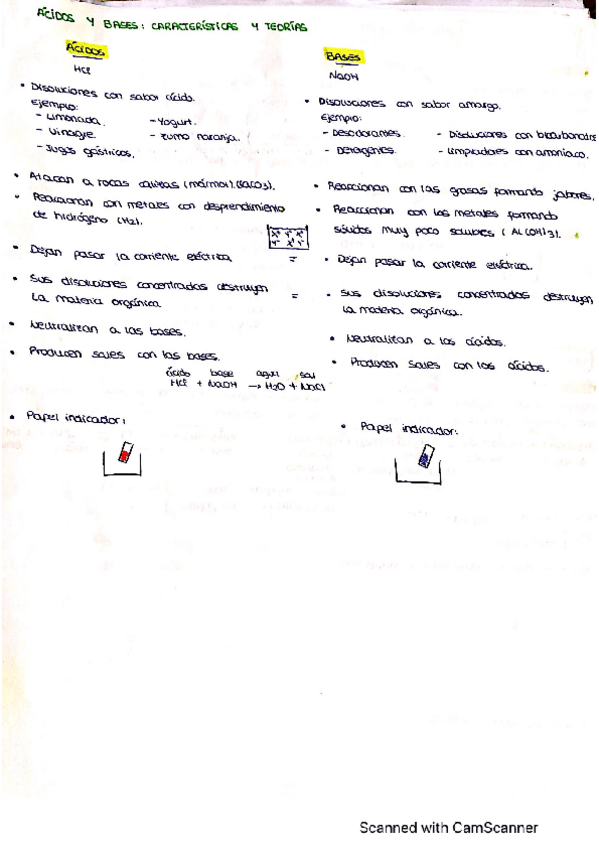 ÁCIDOS Y BASES: CARACTERÍSTICAS Y TEORÍAS
ÁCIDOS
HCl
• Disoluciones con sabor ácido.
Ejemplo:
- Limonada. - Yogurt.
- Vinagre. - Zumo naranja.
- Jugos gástricos.
• Atacan a rocas calizas (mármol).
• Reaccionan con metales con desprendimiento
de hidrógeno (H2).
• Dejan pasar la corriente eléctrica =
• Sus disoluciones concentradas destruyen =
la materia orgánica.
• Neutralizan a las bases.
• Producen sales con las bases.
ácido base agua sal
HCl + NaOH → H2O + NaCl
• Papel indicador:
BASES
NaOH
• Disoluciones con sabor amargo.
Ejemplo:
- Desodorantes. - Disoluciones con bicarbonato
- Detergentes. - Limpiadores con amoniaco.
• Reaccionan con las grasas formando jabones.
• Reaccionan con los metales formando
sólidos muy poco solubles (Al(OH)3).
• Dejan pasar la corriente eléctrica.
• Sus disoluciones concentradas destruyen
la materia orgánica.
• Neutralizan a los ácidos.
• Producen sales con los ácidos.
• Papel indicador:
Scanned with CamScanner